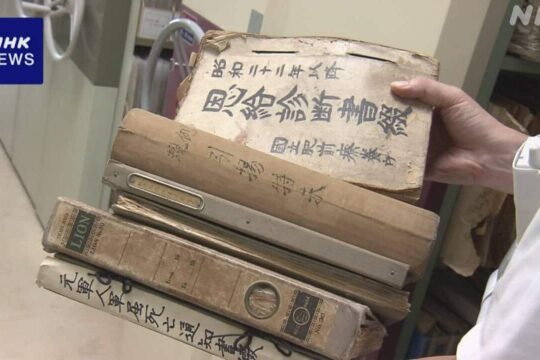 NHK
NEWS
NHK
昭和二十二年以降
恩給診断書綴
国立肥前療養所
引揚特患
LION
元軍人軍属死亡通知書綴